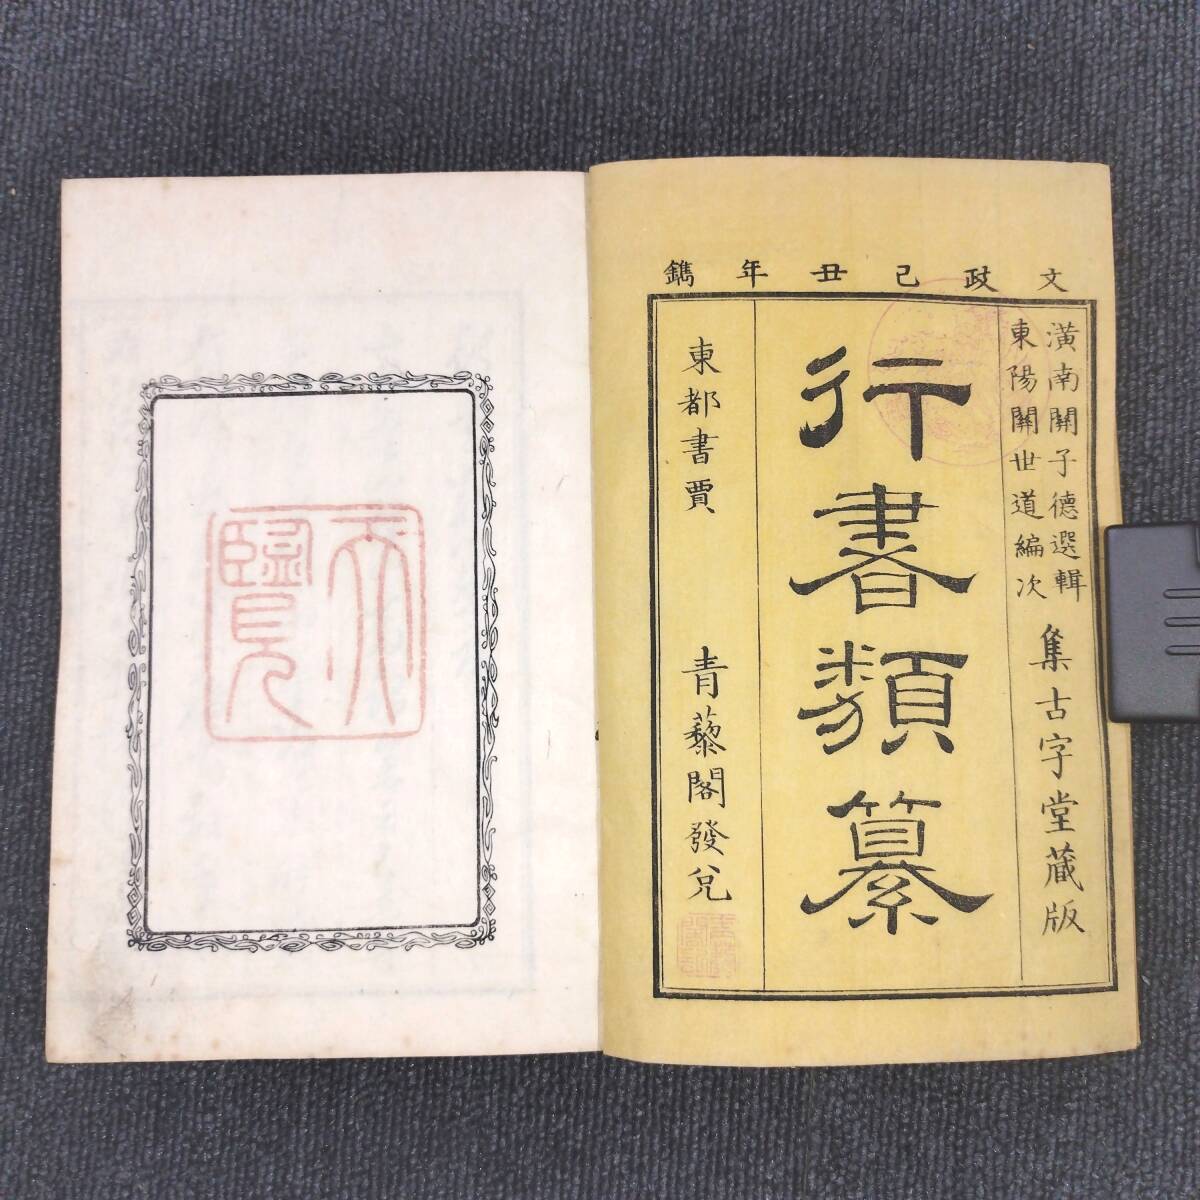 文政己丑年鐫
潢南關子德選輯
東陽關世道編次
集古字堂蔵版
行書類纂
東都書賈
青藜閣發兌
天覽